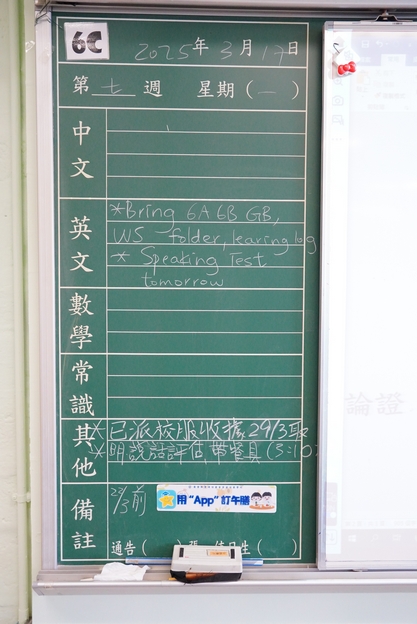 6C
2025年3月17日
第七週 星期(一)
中文
英文
*Bring 6A 6B GB,
WS folder, learing log
* Speaking Test
tomorrow
數學
常識
其他
*已派校服收據29/3取
*明說話評估,帶餐具(3:10
備註
前
用"App"訂午膳
通告( )張 值日生( )
論證